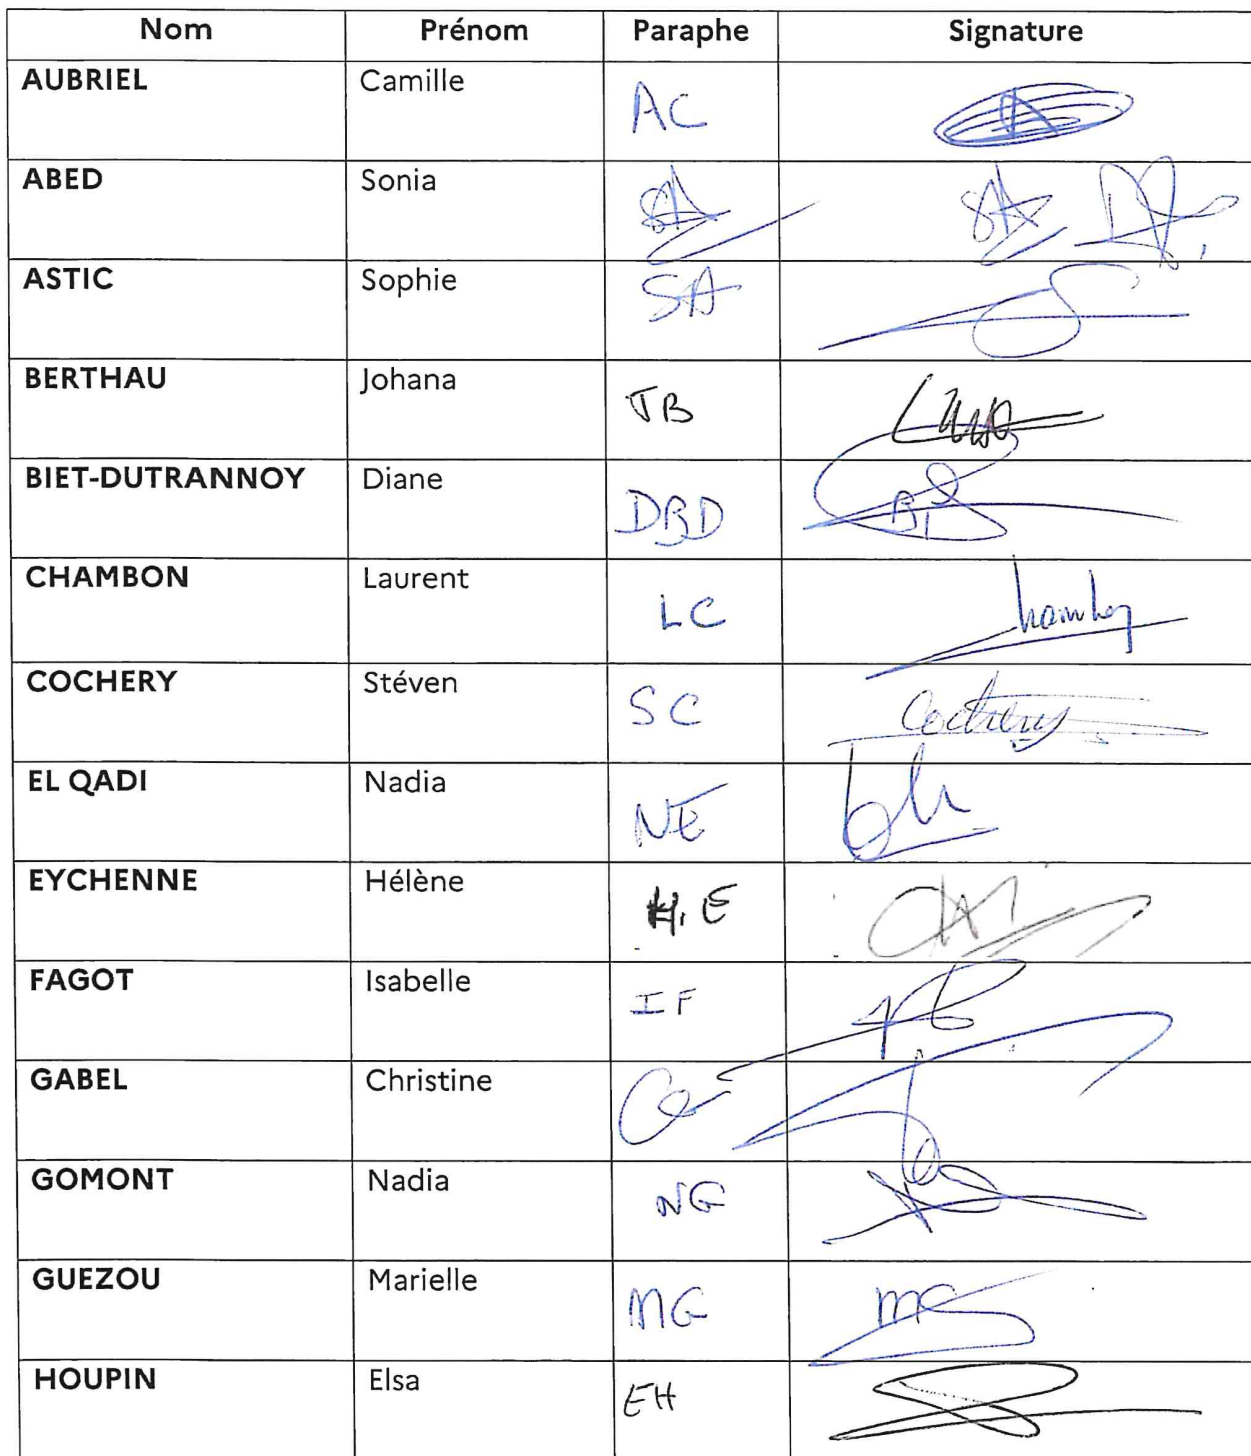 Nom Prénom Paraphe Signature
AUBRIEL Camille AC A
ABED Sonia SA SA
ASTIC Sophie SA
BERTHAU Johana JB
BIET-DUTRANNOY Diane DBD
CHAMBON Laurent LC
COCHERY Stéven SC Cochery
EL QADI Nadia NE
EYCHENNE Hélène H.E
FAGOT Isabelle IF
GABEL Christine
GOMONT Nadia NG
GUEZOU Marielle MG MG
HOUPIN Elsa EH